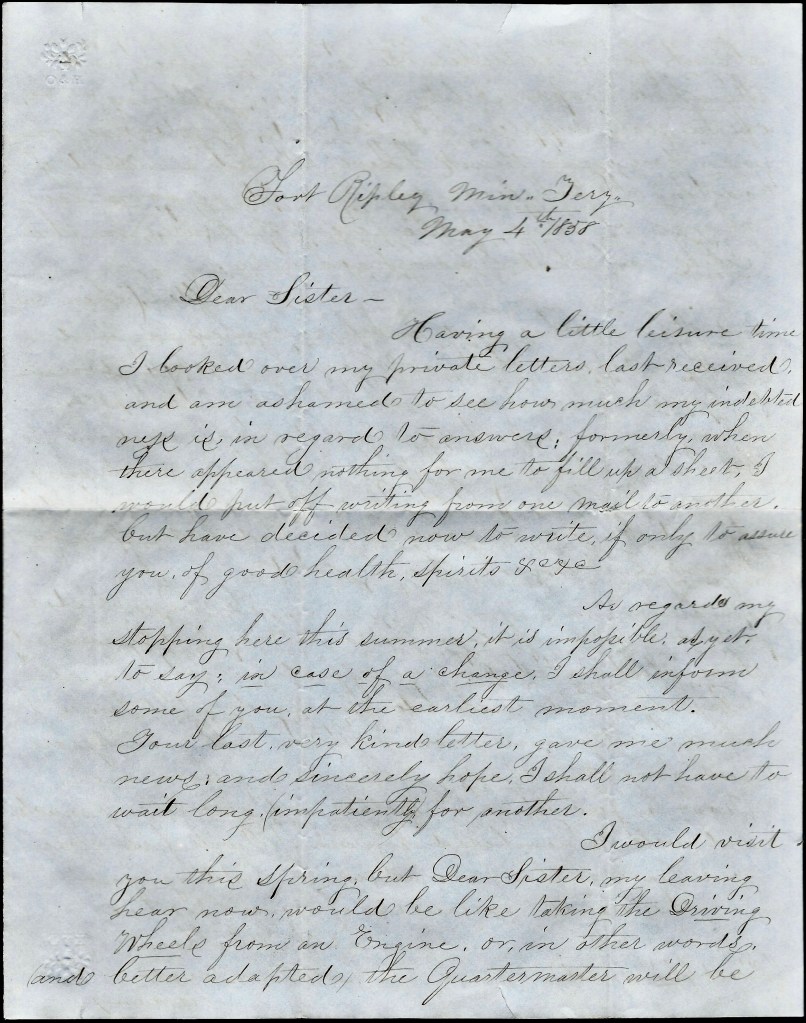 Fort Ripley Min. Tery.
May 4th 1858
Dear Sister —
Having a little leisure time
I looked over my private letters, last received,
and am ashamed to see how much my indebted
ness is, in regard to answers; formerly, when
there appeared nothing for me to fill up a sheet, I
would put off writing from one mail to another.
but have decided now to write, if only to assure
you, of good health, spirits &c &c
As regards my
stopping here this summer, it is impossible, as yet,
to say; in case of a change, I shall inform
some of you, at the earliest moment.
Your last, very kind letter, gave me much
news; and sincerely hope, I shall not have to
wait long, (impatiently) for another.
I would visit
you this spring, but Dear Sister, my leaving
hear now, would be like taking the Driving
Wheels from an Engine, or, in other words,
(and better adapted) the Quartermaster will be